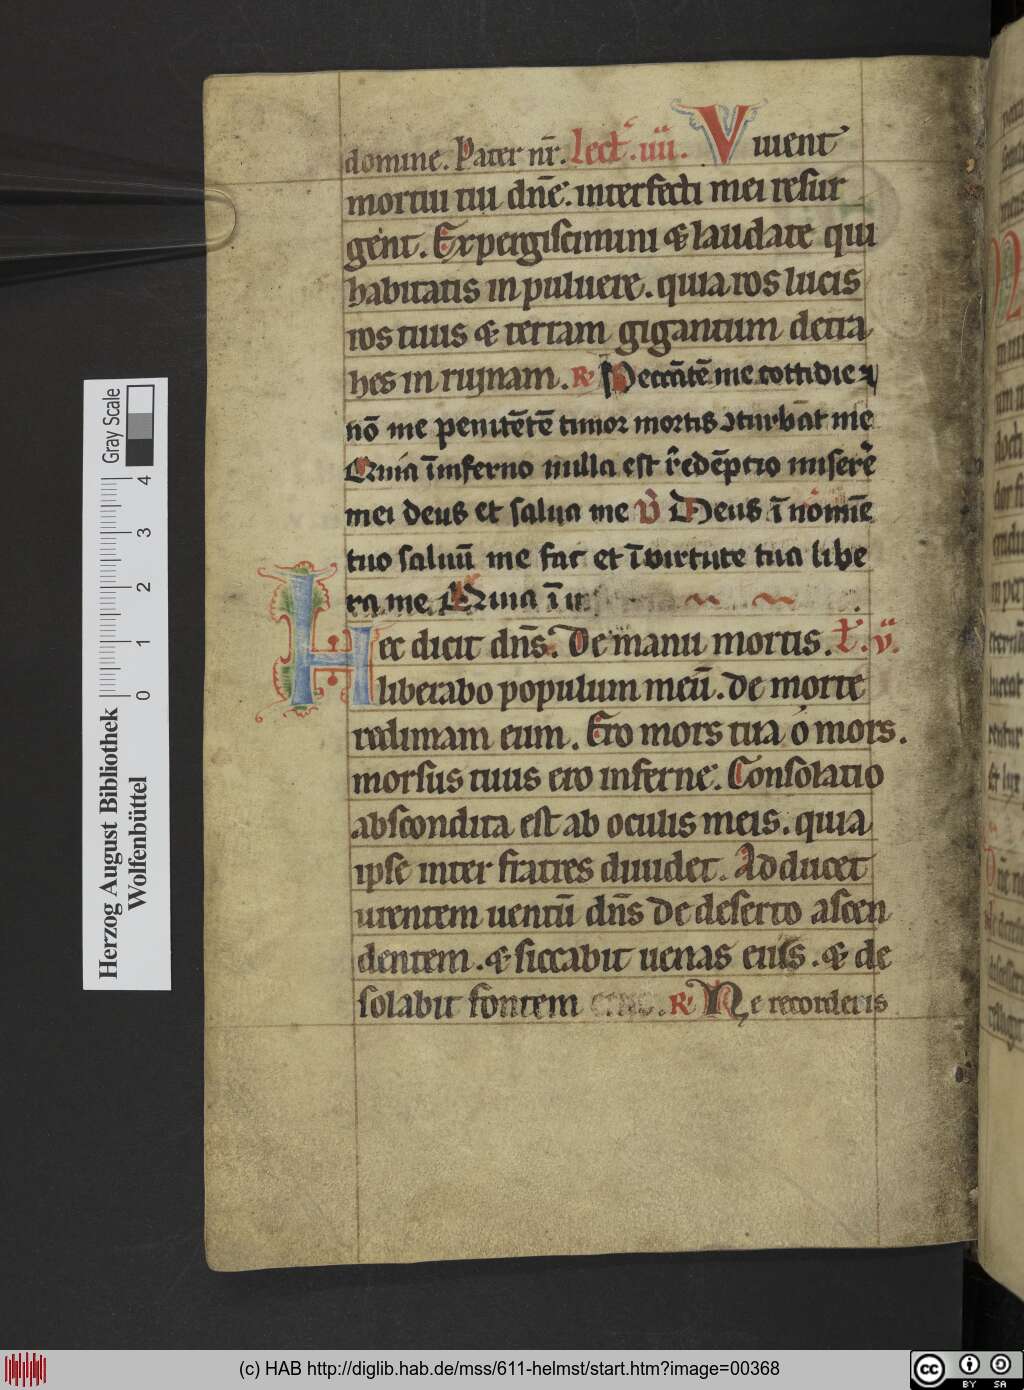 domine. Pater nr̄. Lect̉. iiii. Viuent
mortui tui dn̄e. interfecti mei resur
gent. Expergiscimini & laudate qui
habitatis in puluere. quia ros lucis
ros tuus & terram gigantum detra
hes in ruinam. R̵ Peccātē me cottidie ⁊
nō me penitētē timor mortis ↄturbat me
Quia ī inferno nulla est redēptio miserē
mei deus et salua me V̄ Deus ī nomīe
tuo saluū me fac et ī virtute tua libe
ra me. Quia ī
Hec dicit dn̄s. De manu mortis. L̉. v.
liberabo populum meū. de morte
redimam eum. Ero mors tua o mors.
morsus tuus ero inferne. Consolatio
abscondita est ab oculis meis. quia
ipse inter fratres diuidet. Adducet
urentem uentū dn̄s de deserto ascen
dentem. & siccabit uenas eius. & de
solabit fontem eius. R̵ Ne recorderis
Herzog August Bibliothek
Wolfenbüttel
Gray Scale
0 1 2 3 4
(c) HAB http://diglib.hab.de/mss/611-helmst/start.htm?image=00368
cc BY SA